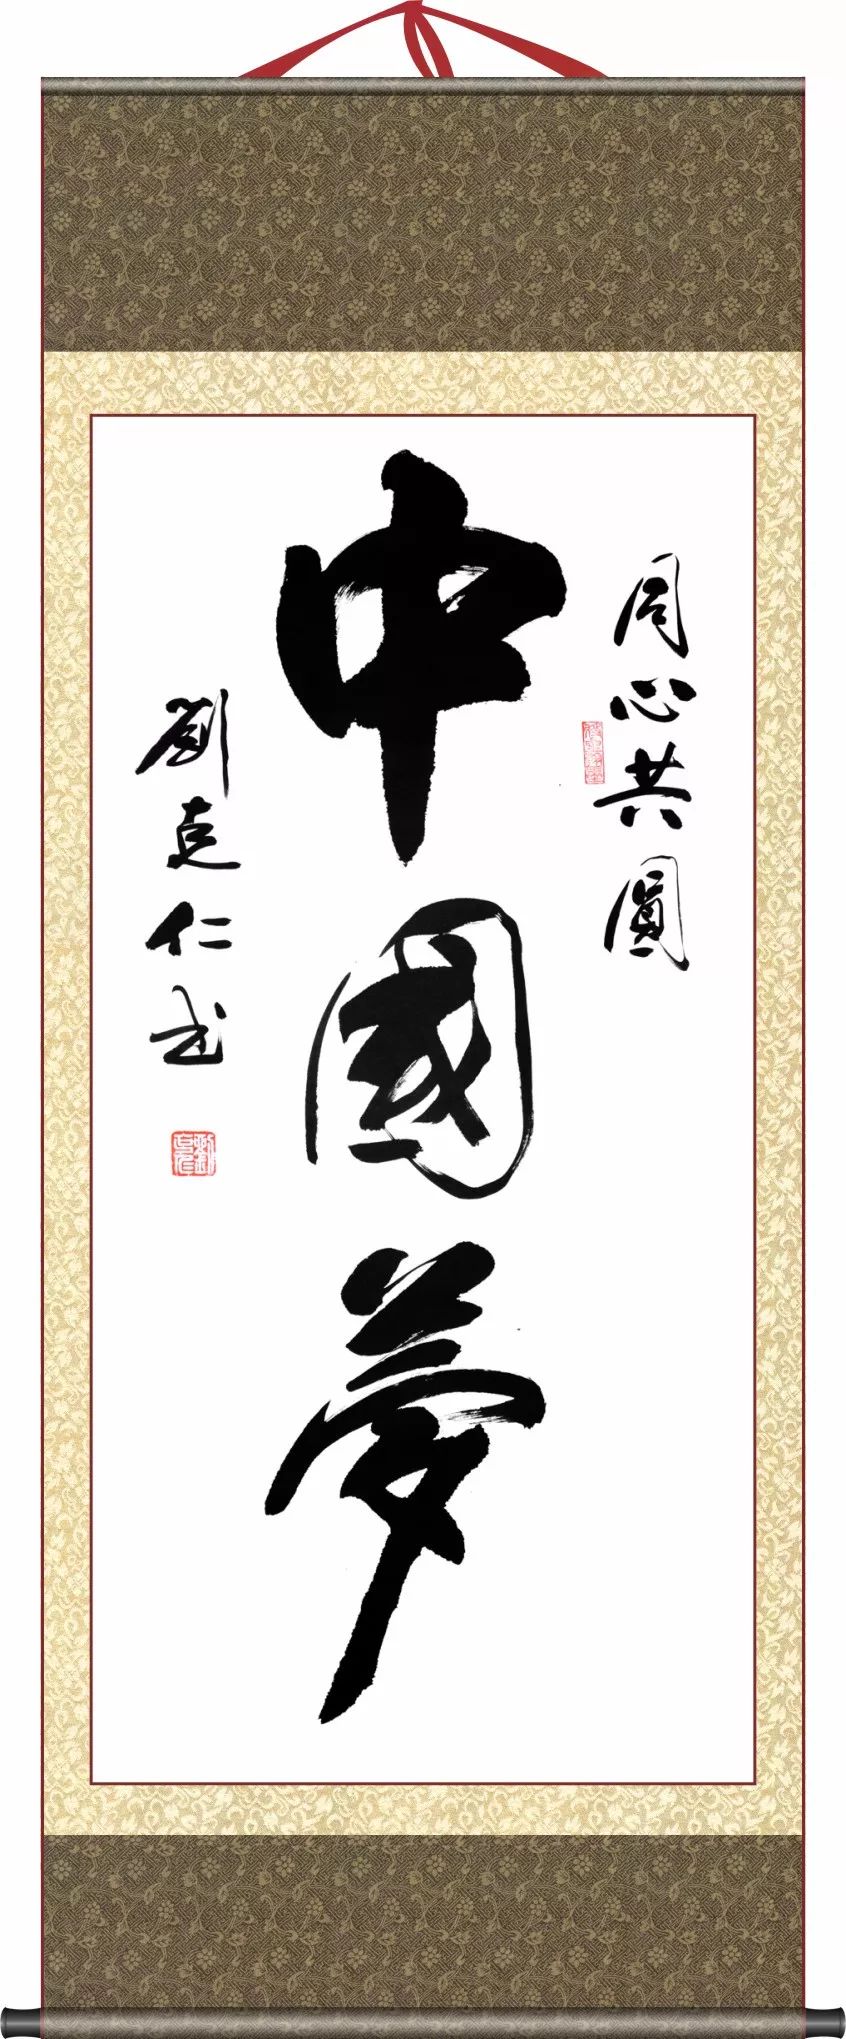 同心共圓
中國夢
劉克仁书